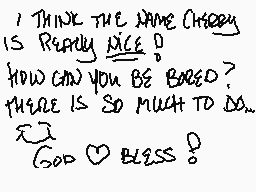 I THINK THE NAME CHERRY
IS REALLY NICE!
HOW CAN YOU BE BORED?
THERE IS SO MUCH TO DO...
GOD ♡ BLESS!